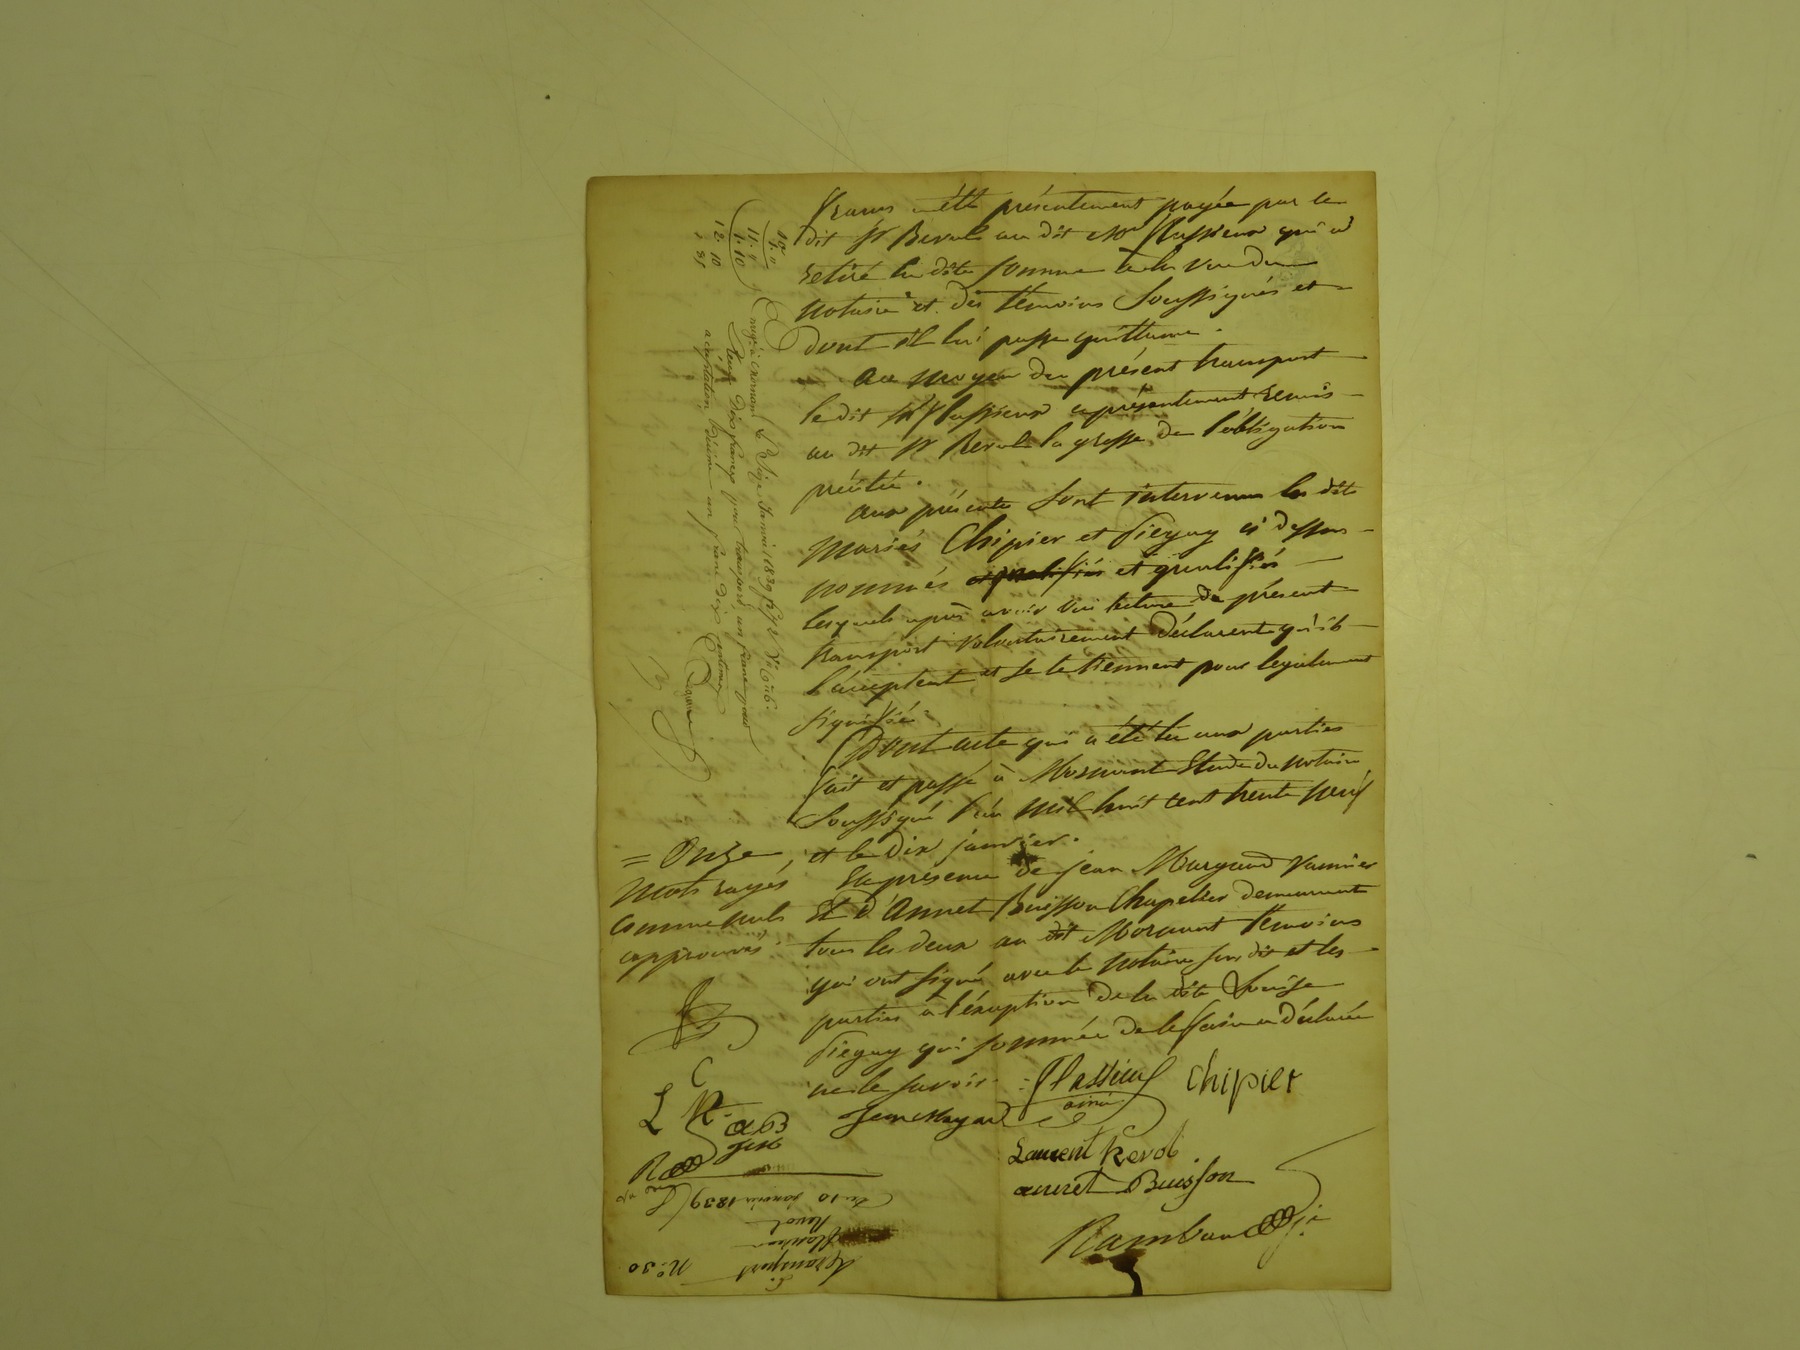 francs a été présentement payée par le
dit Sr Revol au dit Mr Flassieux qui a
retiré la dite somme à la vue du
notaire et des témoins soussignés et
dont il lui passe quittance.
Au moyen du présent transport
le dit Sr Flassieux a présentement remis
au dit Sr Revol la grosse de l'obligation
précitée.
Aux présentes sont intervenus les dits
mariés Chipier et Piegay ci dessus
nommés et qualifiés et qualifiés
lesquels après avoir oui lecture du présent
transport volontairement déclarent qu'ils
l'acceptent et se le tiennent pour légalement
signifié.
Dont acte qui a été lu aux parties
fait et passé à Mornant Etude du notaire
soussigné l'an mil huit cent trente neuf
et le dix janvier.
En présence de Jean Murgaud vannier
et d'Annet Buisson Chapelier demeurant
tous les deux au dit Mornant témoins
qui ont signé avec le notaire sus dit et les
parties à l'exception de la dite Louise
Piegay qui sommée de le faire a déclaré
ne le savoir.
= Onze
mots rayés
comme nuls
approuvés
Flassieux
ainé
Chipier
Laurent Revol
annet Buisson
Rambaud
C
L R. aB
Enregé à Mornant Le Seize Janvier 1839
Reçu Dix francs pour transport, un franc pour
acceptation, Décime un franc dix Centimes
11. "
1. 10
12. 10
Du 10 janvier 1839
Transport
Flassieux
Revol
N° 30